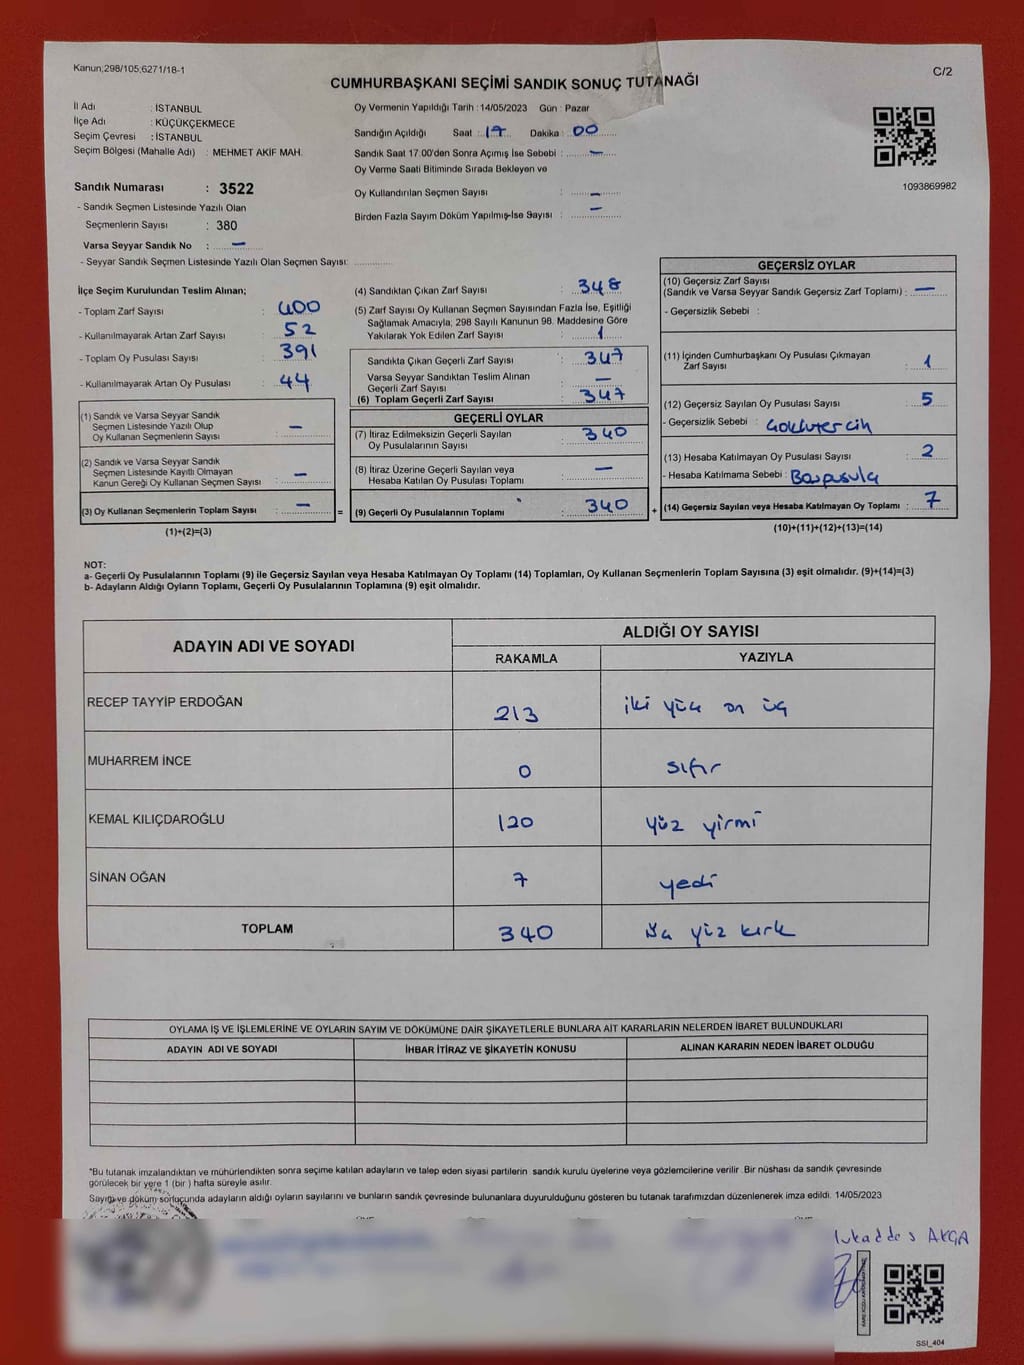 Kanun;298/105;6271/18-1
C/2
CUMHURBAŞKANI SEÇİMİ SANDIK SONUÇ TUTANAĞI
İl Adı : İSTANBUL
İlçe Adı : KÜÇÜKÇEKMECE
Seçim Çevresi : İSTANBUL
Seçim Bölgesi (Mahalle Adı) : MEHMET AKİF MAH.
Oy Vermenin Yapıldığı Tarih : 14/05/2023 Gün : Pazar
Sandığın Açıldığı Saat : 17 Dakika : 00
Sandık Saat 17:00'den Sonra Açımış İse Sebebi : –
Oy Verme Saati Bitiminde Sırada Bekleyen ve
Oy Kullandırılan Seçmen Sayısı : –
Birden Fazla Sayım Döküm Yapılmış İse Sayısı : –
1093869982
Sandık Numarası : 3522
- Sandık Seçmen Listesinde Yazılı Olan
Seçmenlerin Sayısı : 380
Varsa Seyyar Sandık No : –
- Seyyar Sandık Seçmen Listesinde Yazılı Olan Seçmen Sayısı:
İlçe Seçim Kurulundan Teslim Alınan;
- Toplam Zarf Sayısı : 400
- Kullanılmayarak Artan Zarf Sayısı : 52
- Toplam Oy Pusulası Sayısı : 391
- Kullanılmayarak Artan Oy Pusulası : 44
(1) Sandık ve Varsa Seyyar Sandık
Seçmen Listesinde Yazılı Olup
Oy Kullanan Seçmenlerin Sayısı : –
(2) Sandık ve Varsa Seyyar Sandık
Seçmen Listesinde Kayıtlı Olmayan
Kanun Gereği Oy Kullanan Seçmen Sayısı : –
(3) Oy Kullanan Seçmenlerin Toplam Sayısı : –
(1)+(2)=(3)
=
(4) Sandıktan Çıkan Zarf Sayısı : 348
(5) Zarf Sayısı Oy Kullanan Seçmen Sayısından Fazla İse, Eşitliği
Sağlamak Amacıyla; 298 Sayılı Kanunun 98. Maddesine Göre
Yakılarak Yok Edilen Zarf Sayısı : 1
Sandıkta Çıkan Geçerli Zarf Sayısı : 347
Varsa Seyyar Sandıktan Teslim Alınan
Geçerli Zarf Sayısı : –
(6) Toplam Geçerli Zarf Sayısı : 347
GEÇERLİ OYLAR
(7) İtiraz Edilmeksizin Geçerli Sayılan
Oy Pusulalarının Sayısı : 340
(8) İtiraz Üzerine Geçerli Sayılan veya
Hesaba Katılan Oy Pusulası Toplamı : –
(9) Geçerli Oy Pusulalarının Toplamı : 340
+
GEÇERSİZ OYLAR
(10) Geçersiz Zarf Sayısı
(Sandık ve Varsa Seyyar Sandık Geçersiz Zarf Toplamı) : –
- Geçersizlik Sebebi :
(11) İçinden Cumhurbaşkanı Oy Pusulası Çıkmayan
Zarf Sayısı : 1
(12) Geçersiz Sayılan Oy Pusulası Sayısı : 5
- Geçersizlik Sebebi :
(13) Hesaba Katılmayan Oy Pusulası Sayısı : 2
- Hesaba Katılmama Sebebi :
(14) Geçersiz Sayılan veya Hesaba Katılmayan Oy Toplamı : 7
(10)+(11)+(12)+(13)=(14)
NOT:
a- Geçerli Oy Pusulalarının Toplamı (9) ile Geçersiz Sayılan veya Hesaba Katılmayan Oy Toplamı (14) Toplamları, Oy Kullanan Seçmenlerin Toplam Sayısına (3) eşit olmalıdır. (9)+(14)=(3)
b- Adayların Aldığı Oyların Toplamı, Geçerli Oy Pusulalarının Toplamına (9) eşit olmalıdır.
ADAYIN ADI VE SOYADI
ALDIĞI OY SAYISI
RAKAMLA YAZIYLA
RECEP TAYYİP ERDOĞAN 213 iki yüz on üç
MUHARREM İNCE 0 sıfır
KEMAL KILIÇDAROĞLU 120 yüz yirmi
SİNAN OĞAN 7 yedi
TOPLAM 340 yüz kırk
OYLAMA İŞ VE İŞLEMLERİNE VE OYLARIN SAYIM VE DÖKÜMÜNE DAİR ŞİKAYETLERLE BUNLARA AİT KARARLARIN NELERDEN İBARET BULUNDUKLARI
ADAYIN ADI VE SOYADI İHBAR İTİRAZ VE ŞİKAYETİN KONUSU ALINAN KARARIN NEDEN İBARET OLDUĞU
*Bu tutanak imzalandıktan ve mühürlendikten sonra seçime katılan adayların ve talep eden siyasi partilerin sandık kurulu üyelerine veya gözlemcilerine verilir. Bir nüshası da sandık çevresinde
görülecek bir yere 1 (bir ) hafta süreyle asılır.
Sayım ve döküm sonucunda adayların aldığı oyların sayılarını ve bunların sandık çevresinde bulunanlara duyurulduğunu gösteren bu tutanak tarafımızdan düzenlenerek imza edildi. 14/05/2023
AKÇA
SSI_404